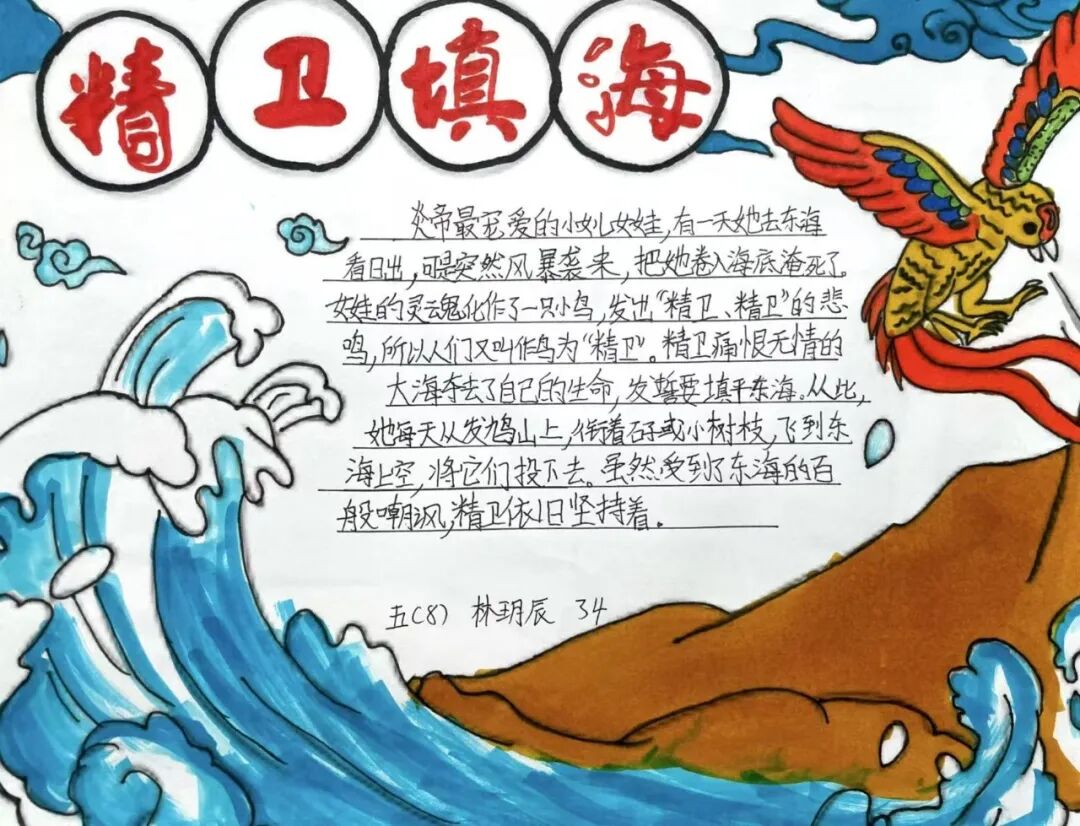 精卫填海
炎帝最宠爱的小女儿女娃,有一天她去东海
看日出,可是突然风暴袭来,把她卷入海底淹死了。
女娃的灵魂化作了一只小鸟,发出“精卫、精卫”的悲
鸣,所以人们又叫作鸟为“精卫”。精卫痛恨无情的
大海夺去了自己的生命,发誓要填平东海。从此,
她每天从发鸠山上,衔着石子或小树枝,飞到东
海上空,将它们投下去。虽然受到了东海的百
般嘲讽,精卫依旧坚持着。
五(8) 林玥辰 34